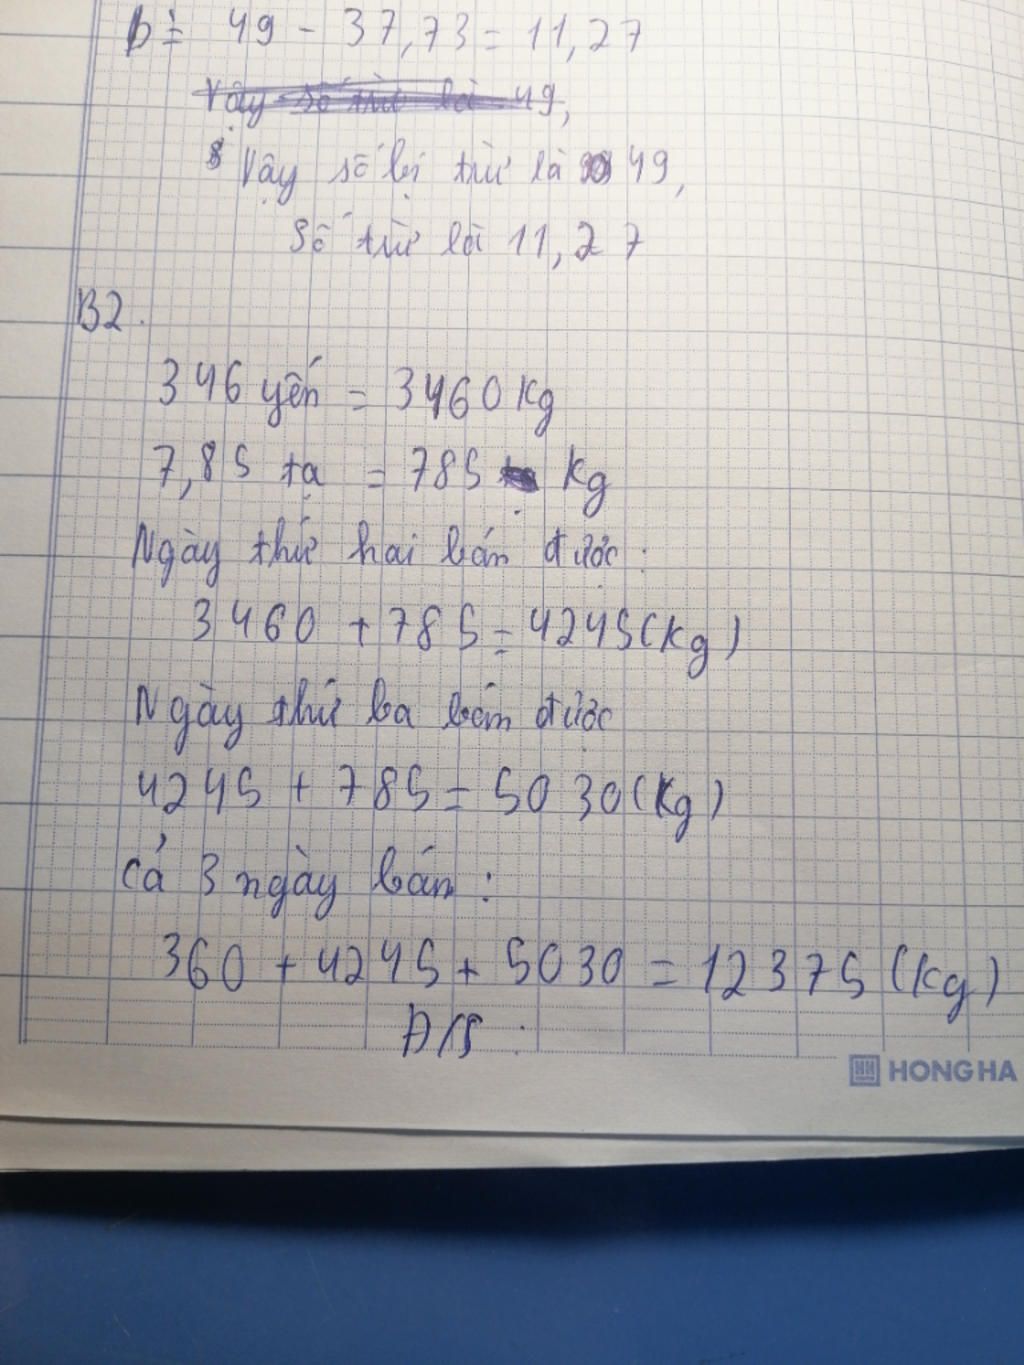 b = 49 - 37,73 = 11,27
Vậy số trừ là 49,
Vậy số bị trừ là 49,
Số trừ là 11,27
B2.
346 yến = 3460 kg
7,85 tạ = 785 kg
Ngày thứ hai bán được:
3460 + 785 = 4245 (kg)
Ngày thứ ba bán được
4245 + 785 = 5030 (kg)
Cả 3 ngày bán:
360 + 4245 + 5030 = 12375 (kg)
Đ/S:
HONG HA